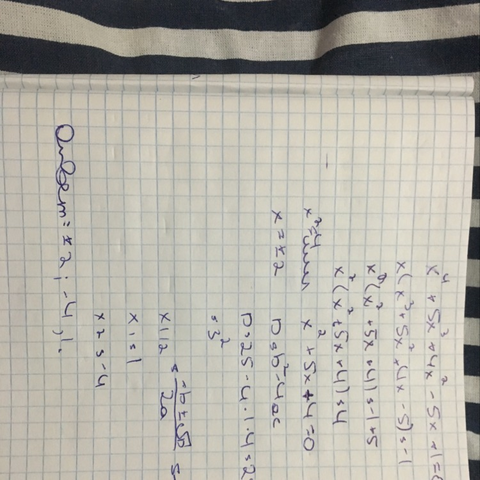 x⁴ + 5x³ + 4x² - 5x + 1 = 0
x(x³ + 5x² + 4x - 5) = -1
x²(x² + 5x + 4) = 4
x² = 4 или x² + 5x + 4 = 0
x = ±2 D = b² - 4ac
D = 25 - 4 · 1 · 4 = 2
= 3²
x₁,₂ = -b ± √D / 2a =
x₁ = 1
x₂ = -4
Ответ: ±2; -4; 1.